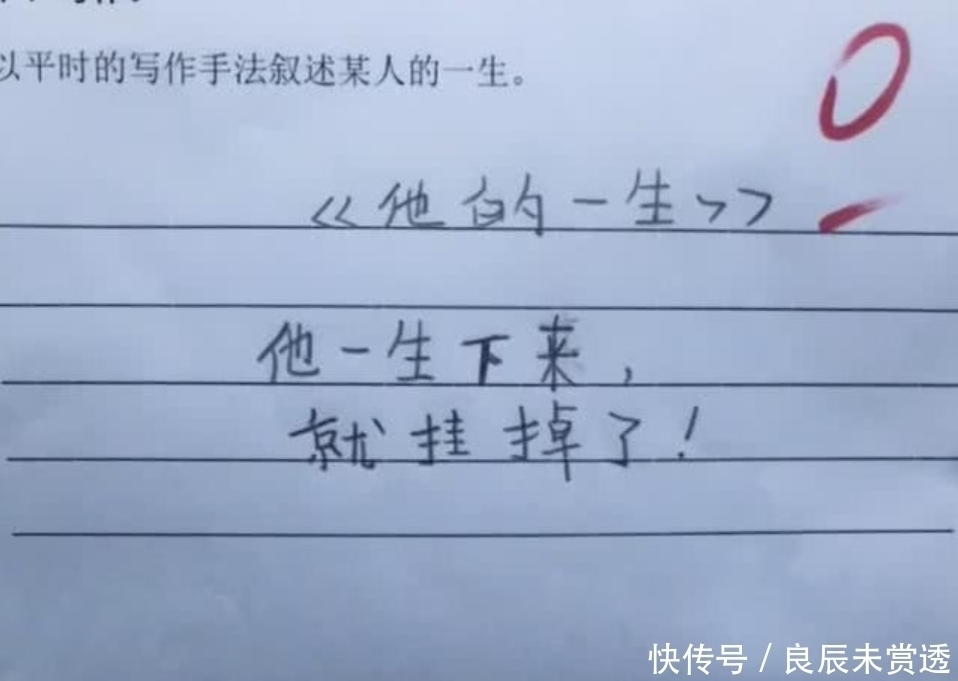 以平时的写作手法叙述某人的一生。
0
《他的一生》
他一生下来，
就挂掉了！
快传号/良辰未赏透